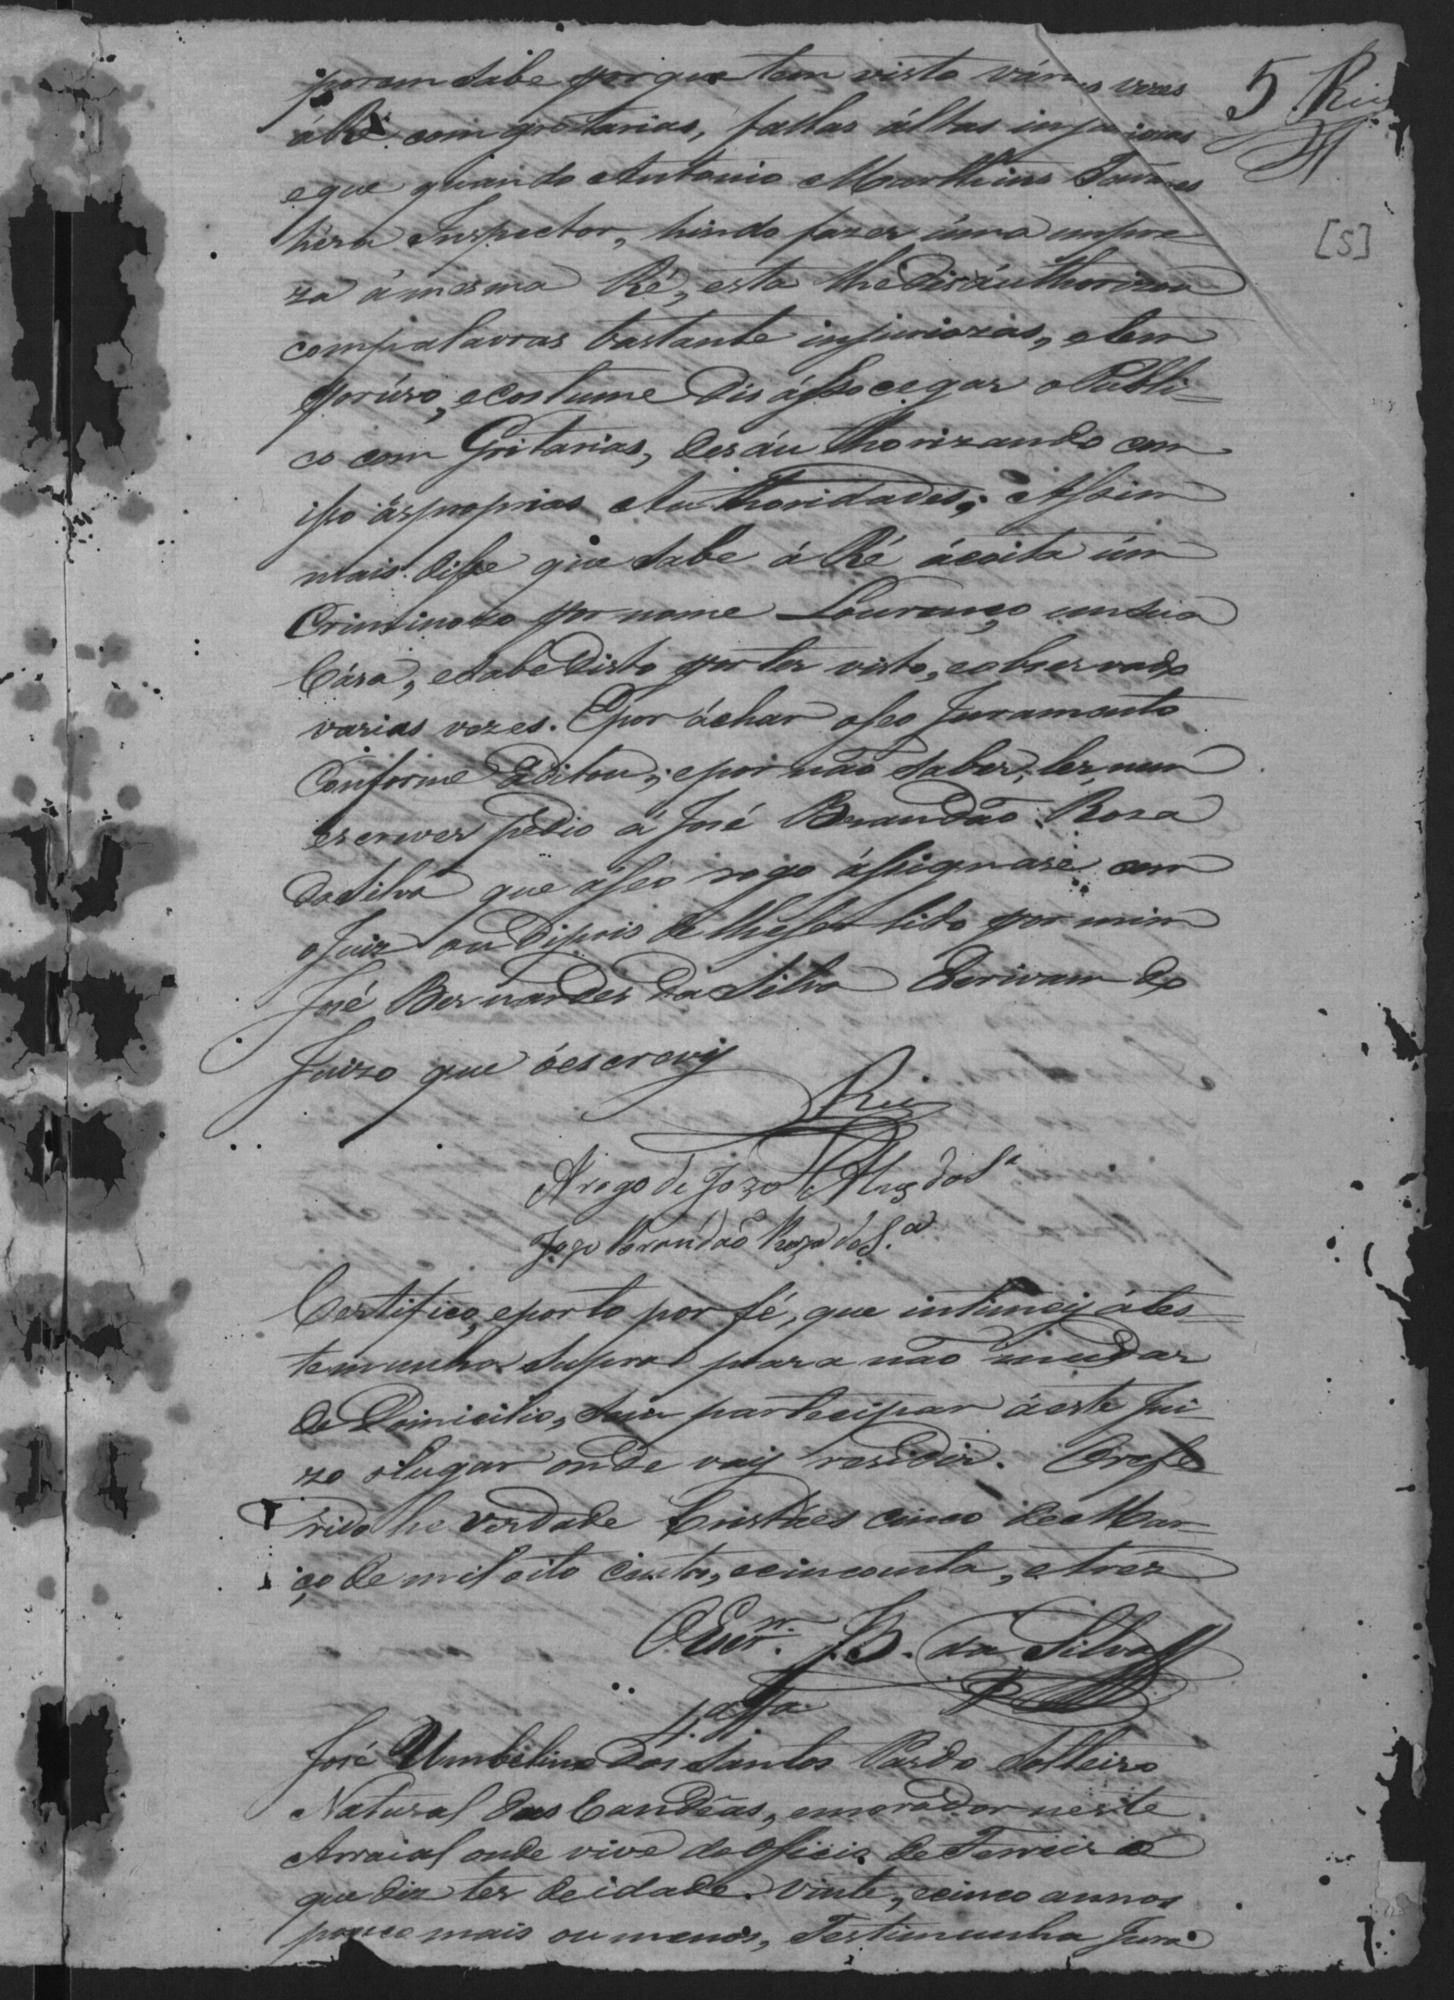 5 Reis
[5]
porem sabe porque tem visto varias vezes
áRé com gritarias, fallas áltas injuriozas
eque quando Antonio Martins Tavares
héra Inspector, hindo fazer úma impre-
za ámesma Ré, esta lhe disáuthorizou
compalavras bastante injuriozas, etem
porúzo, ecostume disássocegar o Publi-
co com Gritarias, desáuthorizando com
isso ásproprias Authoridades; Assim
mais disse que sabe á Ré ácoita úm
Criminozo por nome Lourenço emsua
Cáza, esabe disto por ter visto, eobservado
varias vezes. Epor áchar oseo Juramento
Conforme Editou; epor não saber, ler, nem
escrever pedio á José Brandão Roza
daSilva que áseo rogo ássignase com
oJuiz ou dipois de lheser lido por mim
José Bernardes da Silva Escrivam do
Juizo que óescrevij
Reis
A rogo de Jozé Alz dos S.ª
Joze Brandaõ Roza da S.ª
Certifico, eporto por fé, que intimeij átes-
temunha supra para não mudar
de Domicilio, sem partecipar áeste Jui-
zo olugar onde vaij residir. Orefe
rido he verdade Cristaes cinco deMar-
ço de mil oito centos, ecincoenta, etrez
O Escr.m J. B. da Silva
4.ª Ta
José Umbelino dos Santos Pardo Solteiro
Natural das Candêas, emorador neste
Arraial onde vive deofficio de Ferreiro e
que diz ter deidade vinte, ecinco annos
pouco mais ou menos, Testimunha Jura